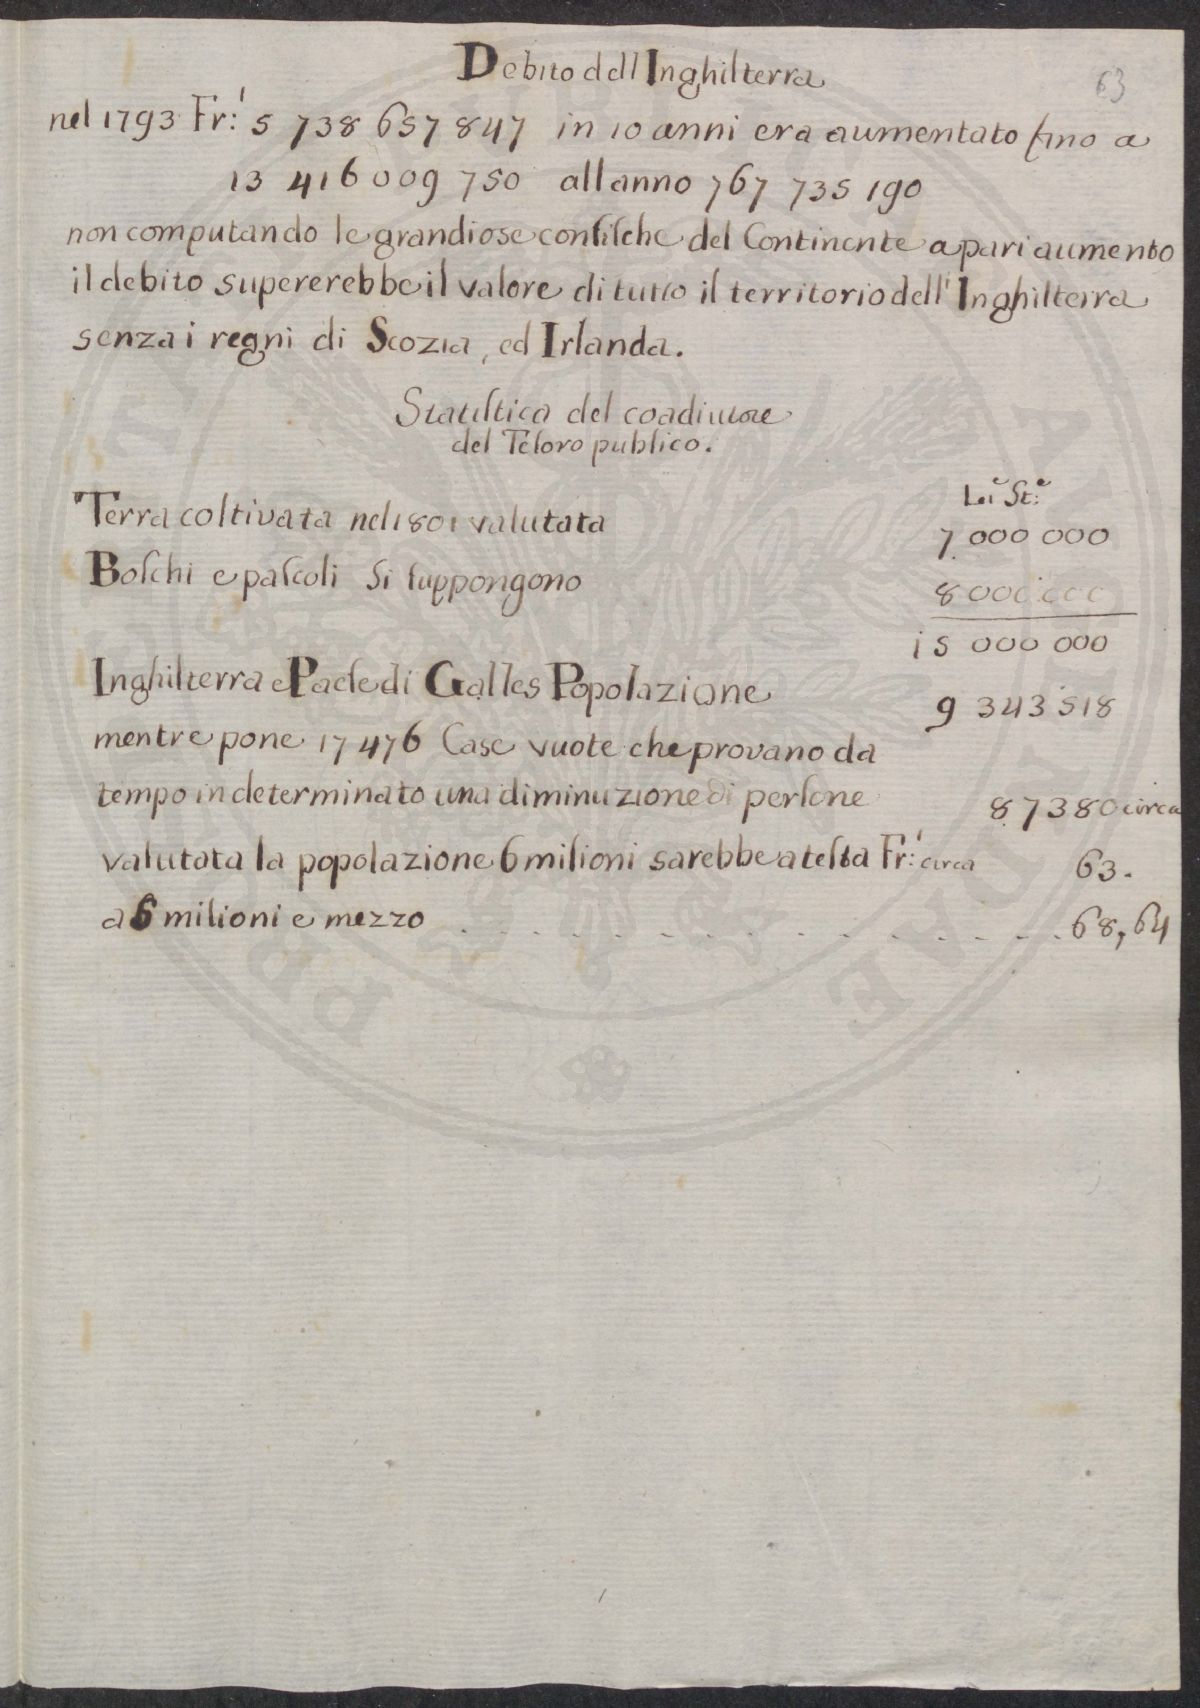 63
Debito dell Inghilterra
nel 1793 Fr:i 5 738 657 847 in 10 anni era aumentato fino a
13 416 009 750 all anno 767 735 190
non computando le grandiose confische del Continente a pari aumento
il debito supererebbe il valore di tutto il territorio dell' Inghilterra
senza i regni di Scozia, ed Irlanda.
Statistica del coadiutore
del Tesoro publico.
St:e
Terra coltivata nel 1801 valutata 7 000 000
Boschi e pascoli si suppongono 8 000 000
15 000 000
Inghilterra e Paese di Galles Popolazione 9 343 518
mentre pone 17 476 Case vuote che provano da
tempo indeterminato una diminuzione di persone 87380 circa
valutata la popolazione 6 milioni sarebbe a testa Fr:i circa 63.
a 6 milioni e mezzo . . . . . . . . . . . . . . . . 68,64